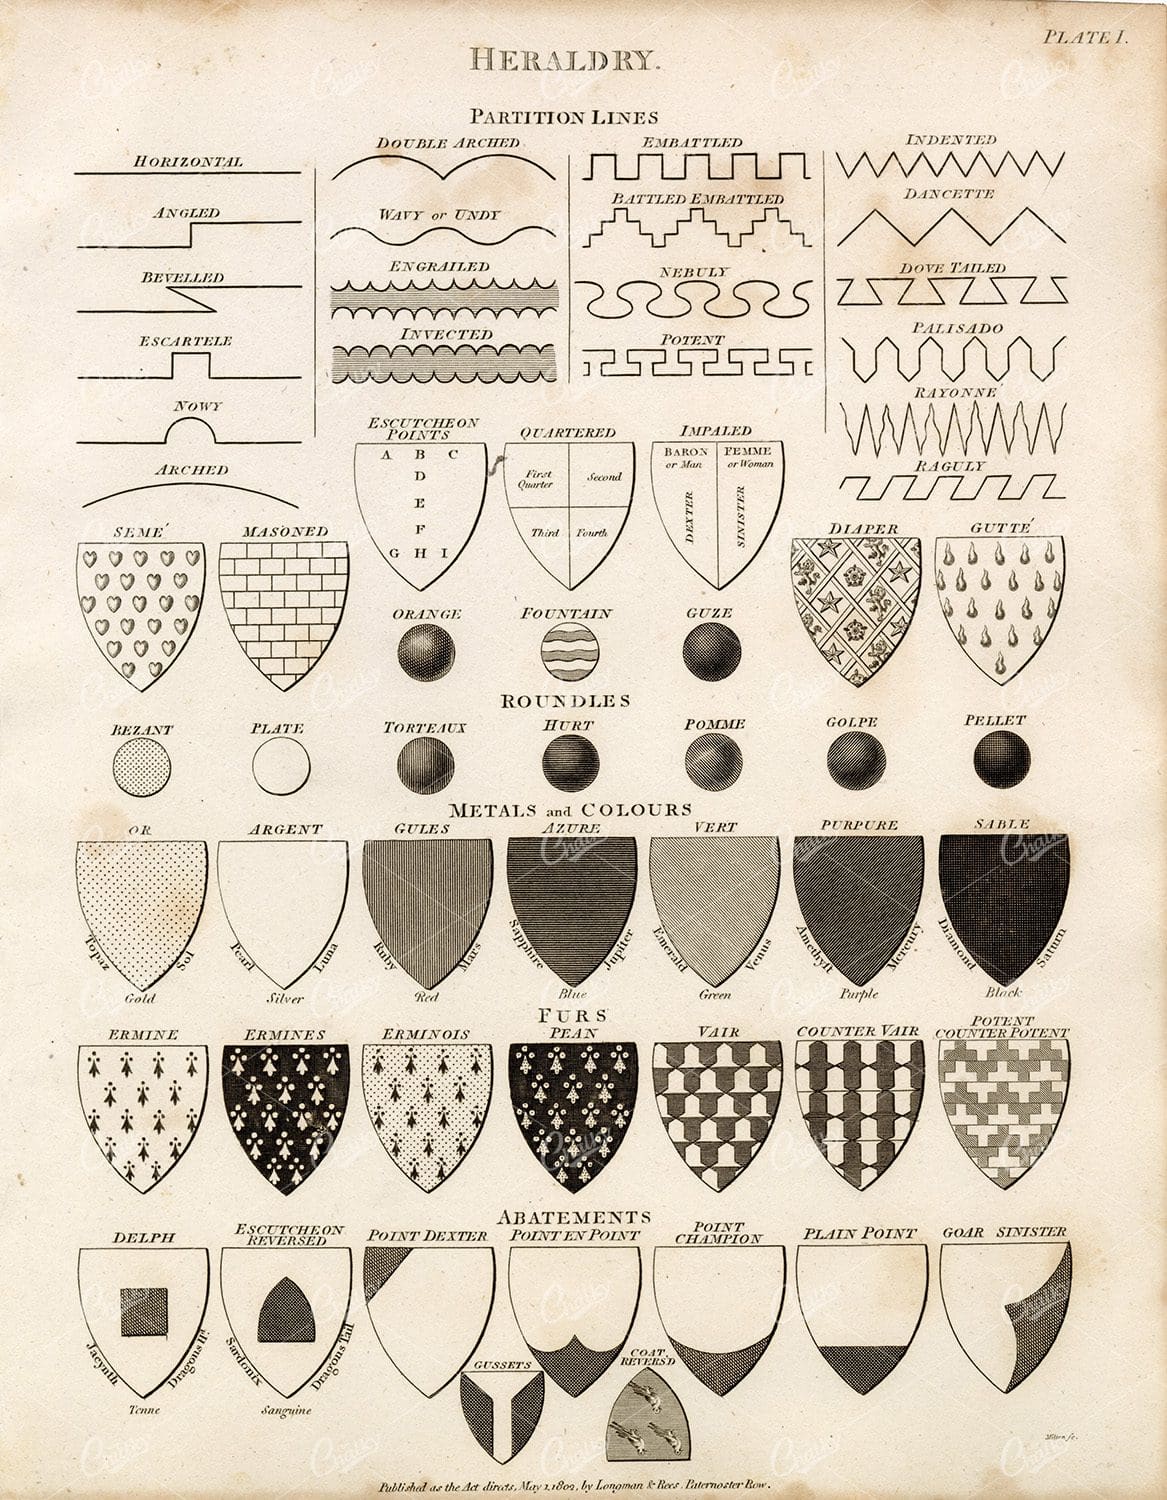 PLATE I.
HERALDRY.
PARTITION LINES
HORIZONTAL
ANGLED
BEVELLED
ESCARTELE
NOWY
ARCHED
DOUBLE ARCHED
WAVY or UNDY
ENGRAILED
INVECTED
EMBATTLED
BATTLED EMBATTLED
NEBULY
POTENT
INDENTED
DANCETTE
DOVE TAILED
PALISADO
RAYONNE'
RAGULY
SEME'
MASONED
ESCUTCHEON
POINTS
A B C
D
E
F
G H I
QUARTERED
First
Quarter
Second
Third
Fourth
IMPALED
BARON
or Man
FEMME
or Woman
DEXTER
SINISTER
DIAPER
GUTTE'
ORANGE
FOUNTAIN
GUZE
ROUNDLES
BEZANT
PLATE
TORTEAUX
HURT
POMME
GOLPE
PELLET
METALS and COLOURS
OR
Topaz
Sol
Gold
ARGENT
Pearl
Luna
Silver
GULES
Ruby
Mars
Red
AZURE
Sapphire
Jupiter
Blue
VERT
Emerald
Venus
Green
PURPURE
Amethyst
Mercury
Purple
SABLE
Diamond
Saturn
Black
FURS
ERMINE
ERMINES
ERMINOIS
PEAN
VAIR
COUNTER VAIR
POTENT
COUNTER POTENT
ABATEMENTS
DELPH
Jacynth
Dragons Hd
Tenne
ESCUTCHEON
REVERSED
Sardonix
Dragons Tail
Sanguine
POINT DEXTER
POINT EN POINT
POINT
CHAMPION
PLAIN POINT
GOAR SINISTER
GUSSETS
COAT
REVERS'D
Milton sc.
Published as the Act directs, May 1, 1802, by Longman & Rees, Paternoster Row.